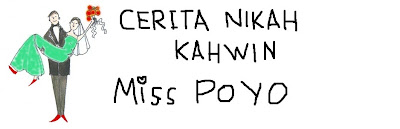 CERITA NIKAH
KAHWIN
Miss POYO